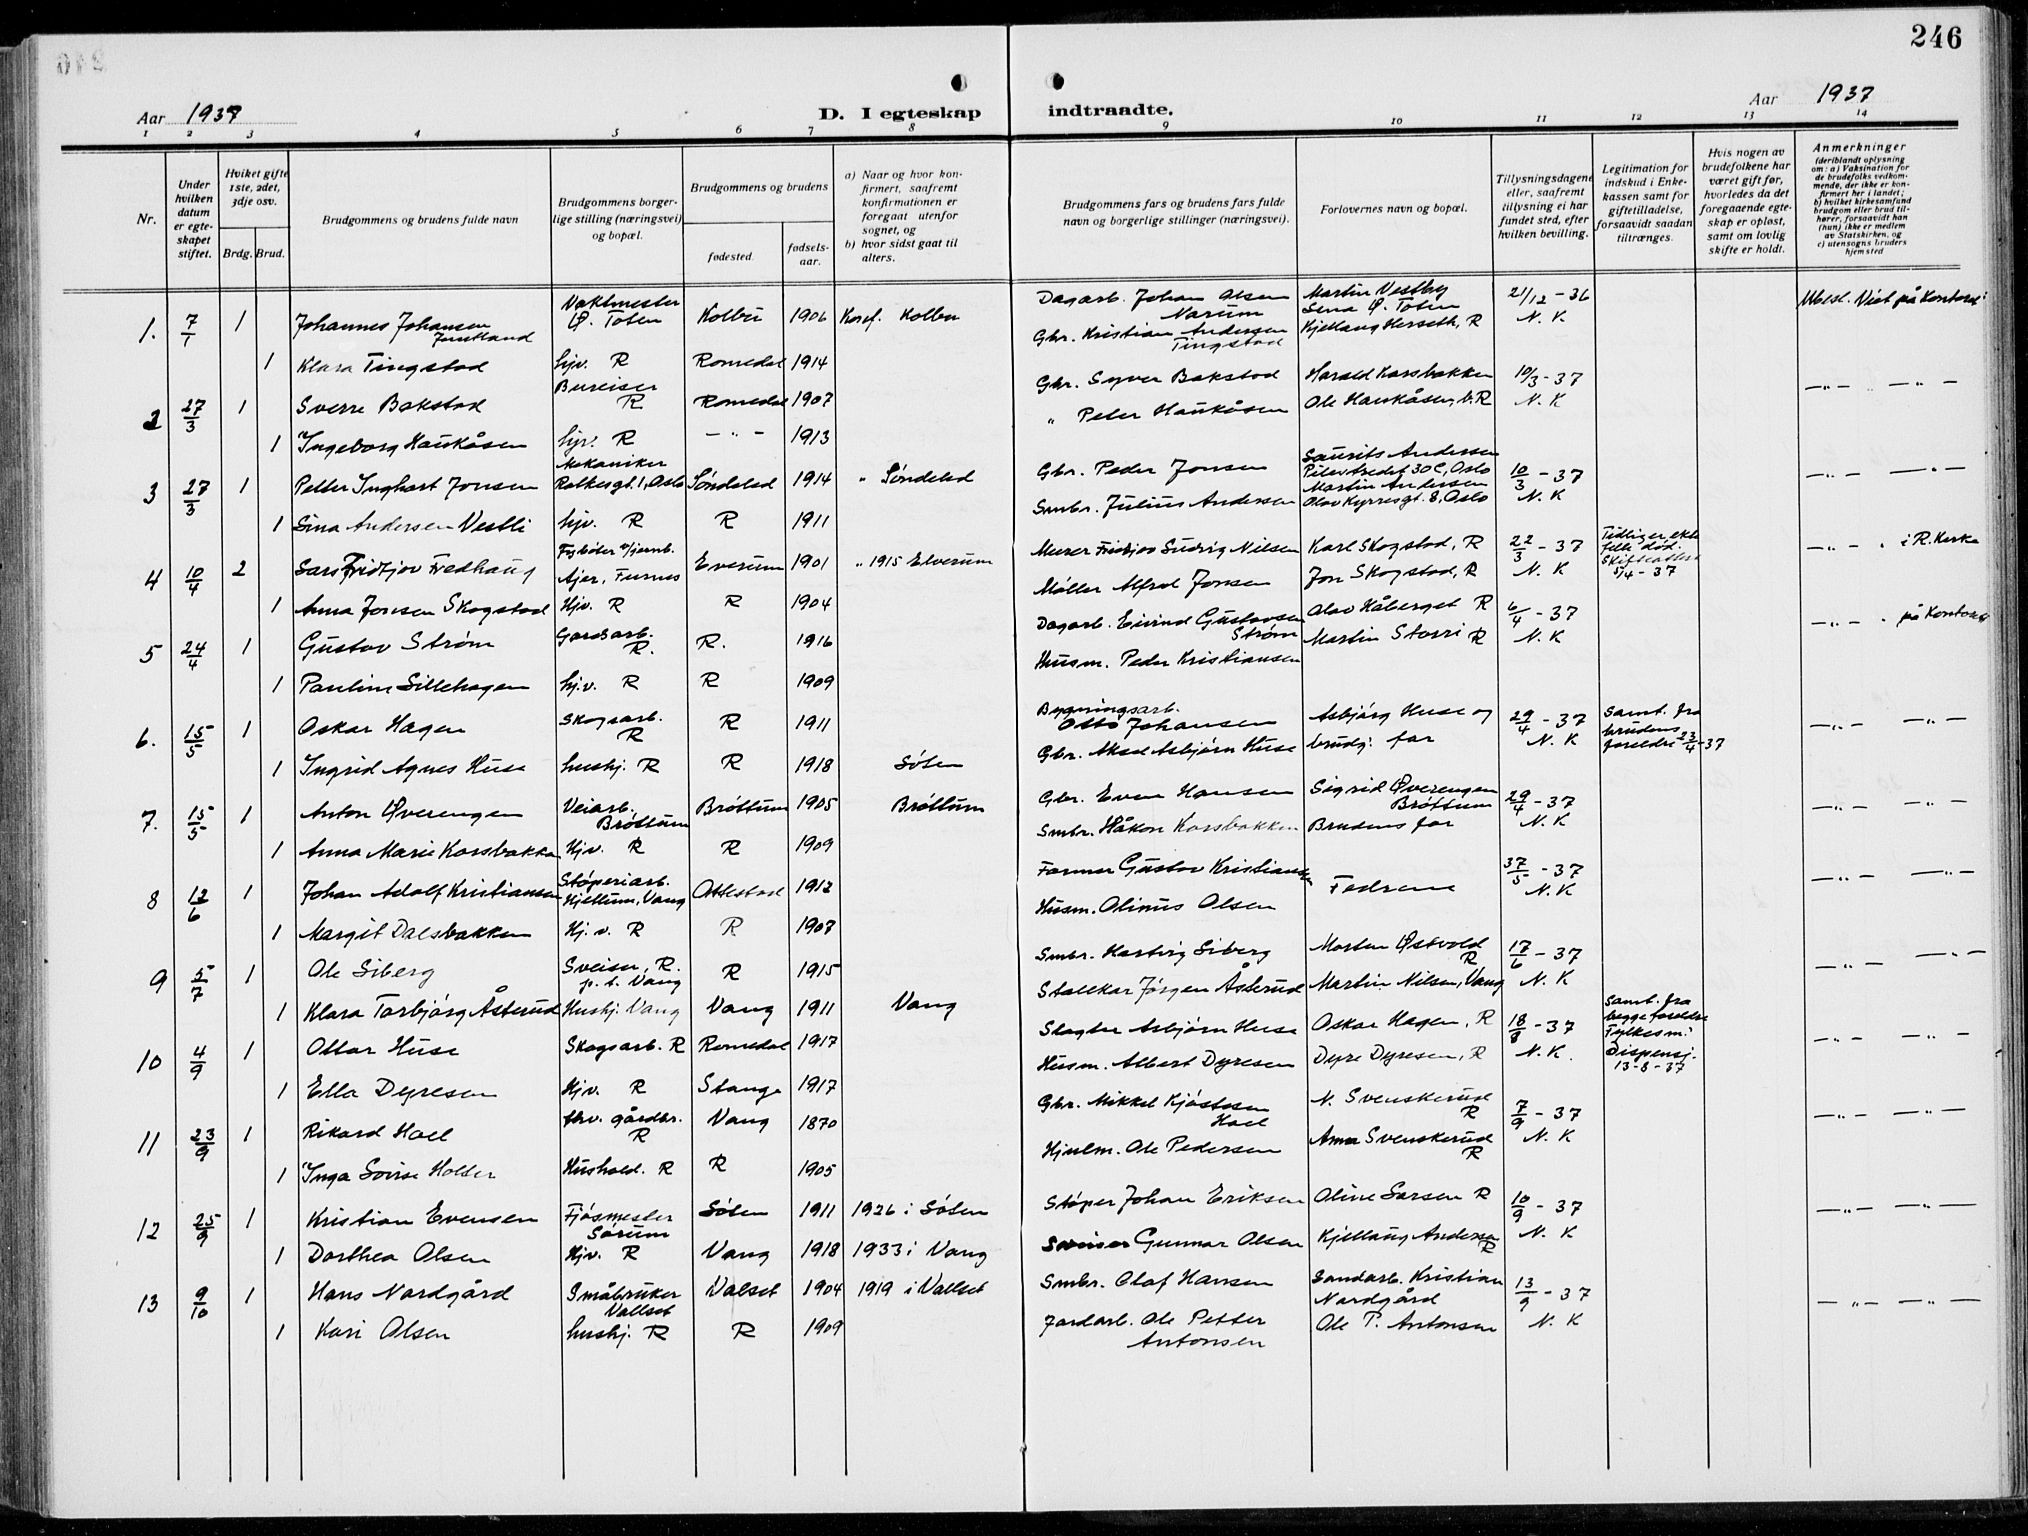 246
Aar 1937
D. I egteskap
indtraadte.
Aar 1937
1 2 3 4 5 6 7 8 9 10 11 12 13 14
Nr.
Under hvilken datum er egteskapet stiftet.
Hvilket gifte 1ste, 2det, 3dje osv.
Brdg. Brud.
Brudgommens og brudens fulde navn
Brudgommens borgerlige stilling (næringsvei) og bopæl.
Brudgommens og brudens
fødested.
fødselsaar.
a) Naar og hvor konfirmert, saafremt konfirmationen er foregaat utenfor sognet, og
b) hvor sidst gaat til alters.
Brudgommens fars og brudens fars fulde navn og borgerlige stillinger (næringsvei).
Forlovernes navn og bopæl.
Tillysningsdagene eller, saafremt tillysning ei har fundet sted, efter hvilken bevilling.
Legitimation for indskud i Enkekassen samt for giftetilladelse, forsaavidt saadan tiltrænges.
Hvis nogen av brudefolkene har været gift før, hvorledes da det foregaaende egteskap er opløst, samt om lovlig skifte er holdt.
Anmerkninger (deriblandt oplysning om: a) Vaksination for de brudefolks vedkommende, der ikke er konfirmert her i landet; b) hvilket kirkesamfund brudgom eller brud tilhører, forsaavidt han (hun) ikke er medlem av Statskirken, og c) utensogns bruders hjemsted
1. 7/1 1 Johannes Johansen Vaktmester Ø. Toten Kolbu 1906 Konf. Kolbu Dagarb. Johan Olsen Narum Martin Vestby Lena Ø. Toten 21/12 - 36 N. K Viet på Kontoret
1 Klara Tingstad hjv. R Romedal 1914 Gbr. Kristian Andersen Tingstad Kjellaug Herseth, R
2 27/3 1 Sverre Bakstad Bureiser R Romedal 1907 Gbr. Syver Bakstad Harald Korsbakken 10/3 - 37 N. K — „ — — „ —
1 Ingeborg Haukåsen hjv. R — „ — 1913 „ Peter Haukåsen Ole Haukåsen, R
3 27/3 1 Petter Inghart Jonsen Mekaniker Oslo Søndeled 1914 „ Søndeled Gbr. Peder Jonsen Laurits Andersen Pilestredet 30 C, Oslo 10/3 - 37 N. K — „ — — „ —
1 Lina Andersen Vestli hjv. R R 1911 Smbr. Julius Andersen Martin Andersen Olav Kyrresgt. 8, Oslo
4 10/4 2 Lars Fridtjov Fredhaug Fyrbøter v/jernb. Ajer, Furnes Elverum 1901 „ 1915 Elverum Murer Fridtjov Ludvig Nilsen Karl Skogstad, R 22/3 - 37 N. K Tidligere ektefelle død. Skifteattest 5/4 - 37 — „ — „ i R. Kirke
1 Anna Jonsen Skogstad Hjv. R R 1904 Møller Alfred Jonsen Jon Skogstad, R
5 24/4 1 Gustav Strøm Gardsarb. R. R. 1916 Dagarb. Eivind Gustavsen Strøm Olav Håberget R 6/4 - 37 N. K — „ — „ på Kontoret
1 Pauline Lillehagen hj.v. R R 1909 Husm. Peder Kristiansen Martin Storri R
6. 15/5 1 Oskar Hagen Skogsarb. R R 1911 Bygningsarb. Otto Johansen Asbjørg Huse og brudg. far 29/4 - 37 N. K Samt. fra brudens foreldre 23/4 - 37 — „ — — „ —
1 Ingrid Agnes Huse hushj. R R 1918 Løten Gbr. Aksel Asbjørn Huse
7. 15/5 1 Anton Øverengen Veiarb. Brøttum Brøttum 1905 Brøttum Gbr. Even Hansen Sigrid Øverengen Brøttum 29/4 - 37 N. K — „ — — „ —
1 Anna Marie Korsbakken Hjv. R R 1909 Smbr. Håkon Korsbakken Brudens far
8 12/6 1 Johan Adolf Kristiansen Støperiarb. Hjellum, Vang Ottestad 1912 Former Gustav Kristiansen Fedrene 37/5 - 37 N. K — „ — — „ —
1 Margit Dalsbakken Hj. v. R R 1907 Husm. Olinus Olsen
9 5/7 1 Ole Siberg Sveiser, R. p. t. Vang R 1915 Smbr. Hartvig Siberg Morten Østvold R 17/6 - 37 N. K — „ — — „ —
1 Klara Torbjørg Åsterud Hushj. Vang Vang 1911 Vang Stallkar Jørgen Åsterud Martin Nilsen, Vang
10 4/9 1 Ottar Huse Skogsarb. R Romedal 1917 Slagter Asbjørn Huse Oskar Hagen, R 18/8 - 37 N. K. Samt. fra begge foreldre Fylkesm. Dispensj. 13-8-37 — „ — — „ —
1 Ella Dyresen Hjv. R Stange 1917 Husm. Albert Dyresen Dyre Dyresen, R
11 23/9 1 Rikard Hoel fhv. gårdbr. R Vang 1870 Gbr. Mikkel Kjøstesen Hoel N. Svenskerud R 7/9 - 37 N. K — „ — — „ —
1 Inga Lovise Holter Hushold. R R 1905 Hjulm. Ole Pedersen Anna Svenskerud R
12 25/9 1 Kristian Evensen Fjøsmester Sørum Løten 1911 1926 i Løten Støper Johan Eriksen Oline Larsen R 10/9 - 37 N. K — „ — — „ —
1 Dorthea Olsen Hjv. R Vang 1918 1933 i Vang Sveiser Gunnar Olsen Kjellaug Andersen R
13 9/10 1 Hans Nordgård Småbruker Vallset Valset 1904 1919 i Vallset Smbr. Olaf Hansen Sandarb. Kristian Nordgård 13/9 - 37 N. K — „ — — „ —
1 Kari Olsen hushj. R R 1909 Jordarb. Ole Petter Antonsen Ole P. Antonsen